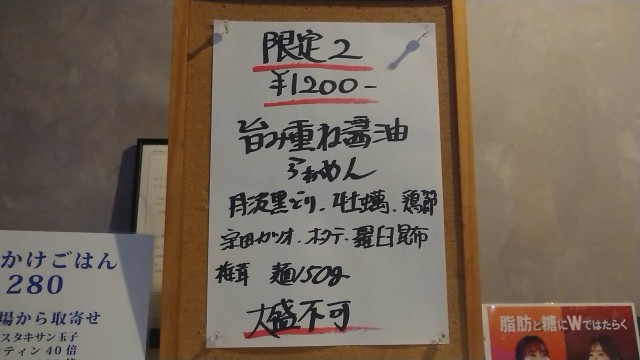 限定2
¥1200-
旨み重ね醤油
らぁめん
丹波黒どり、牡蠣、鶏節
宗田カツオ、ホタテ、羅臼昆布
麺150g
大盛不可
かけごはん
280
場から取寄せ
スタキサン玉子
チン40倍
脂肪と糖にWではたらく